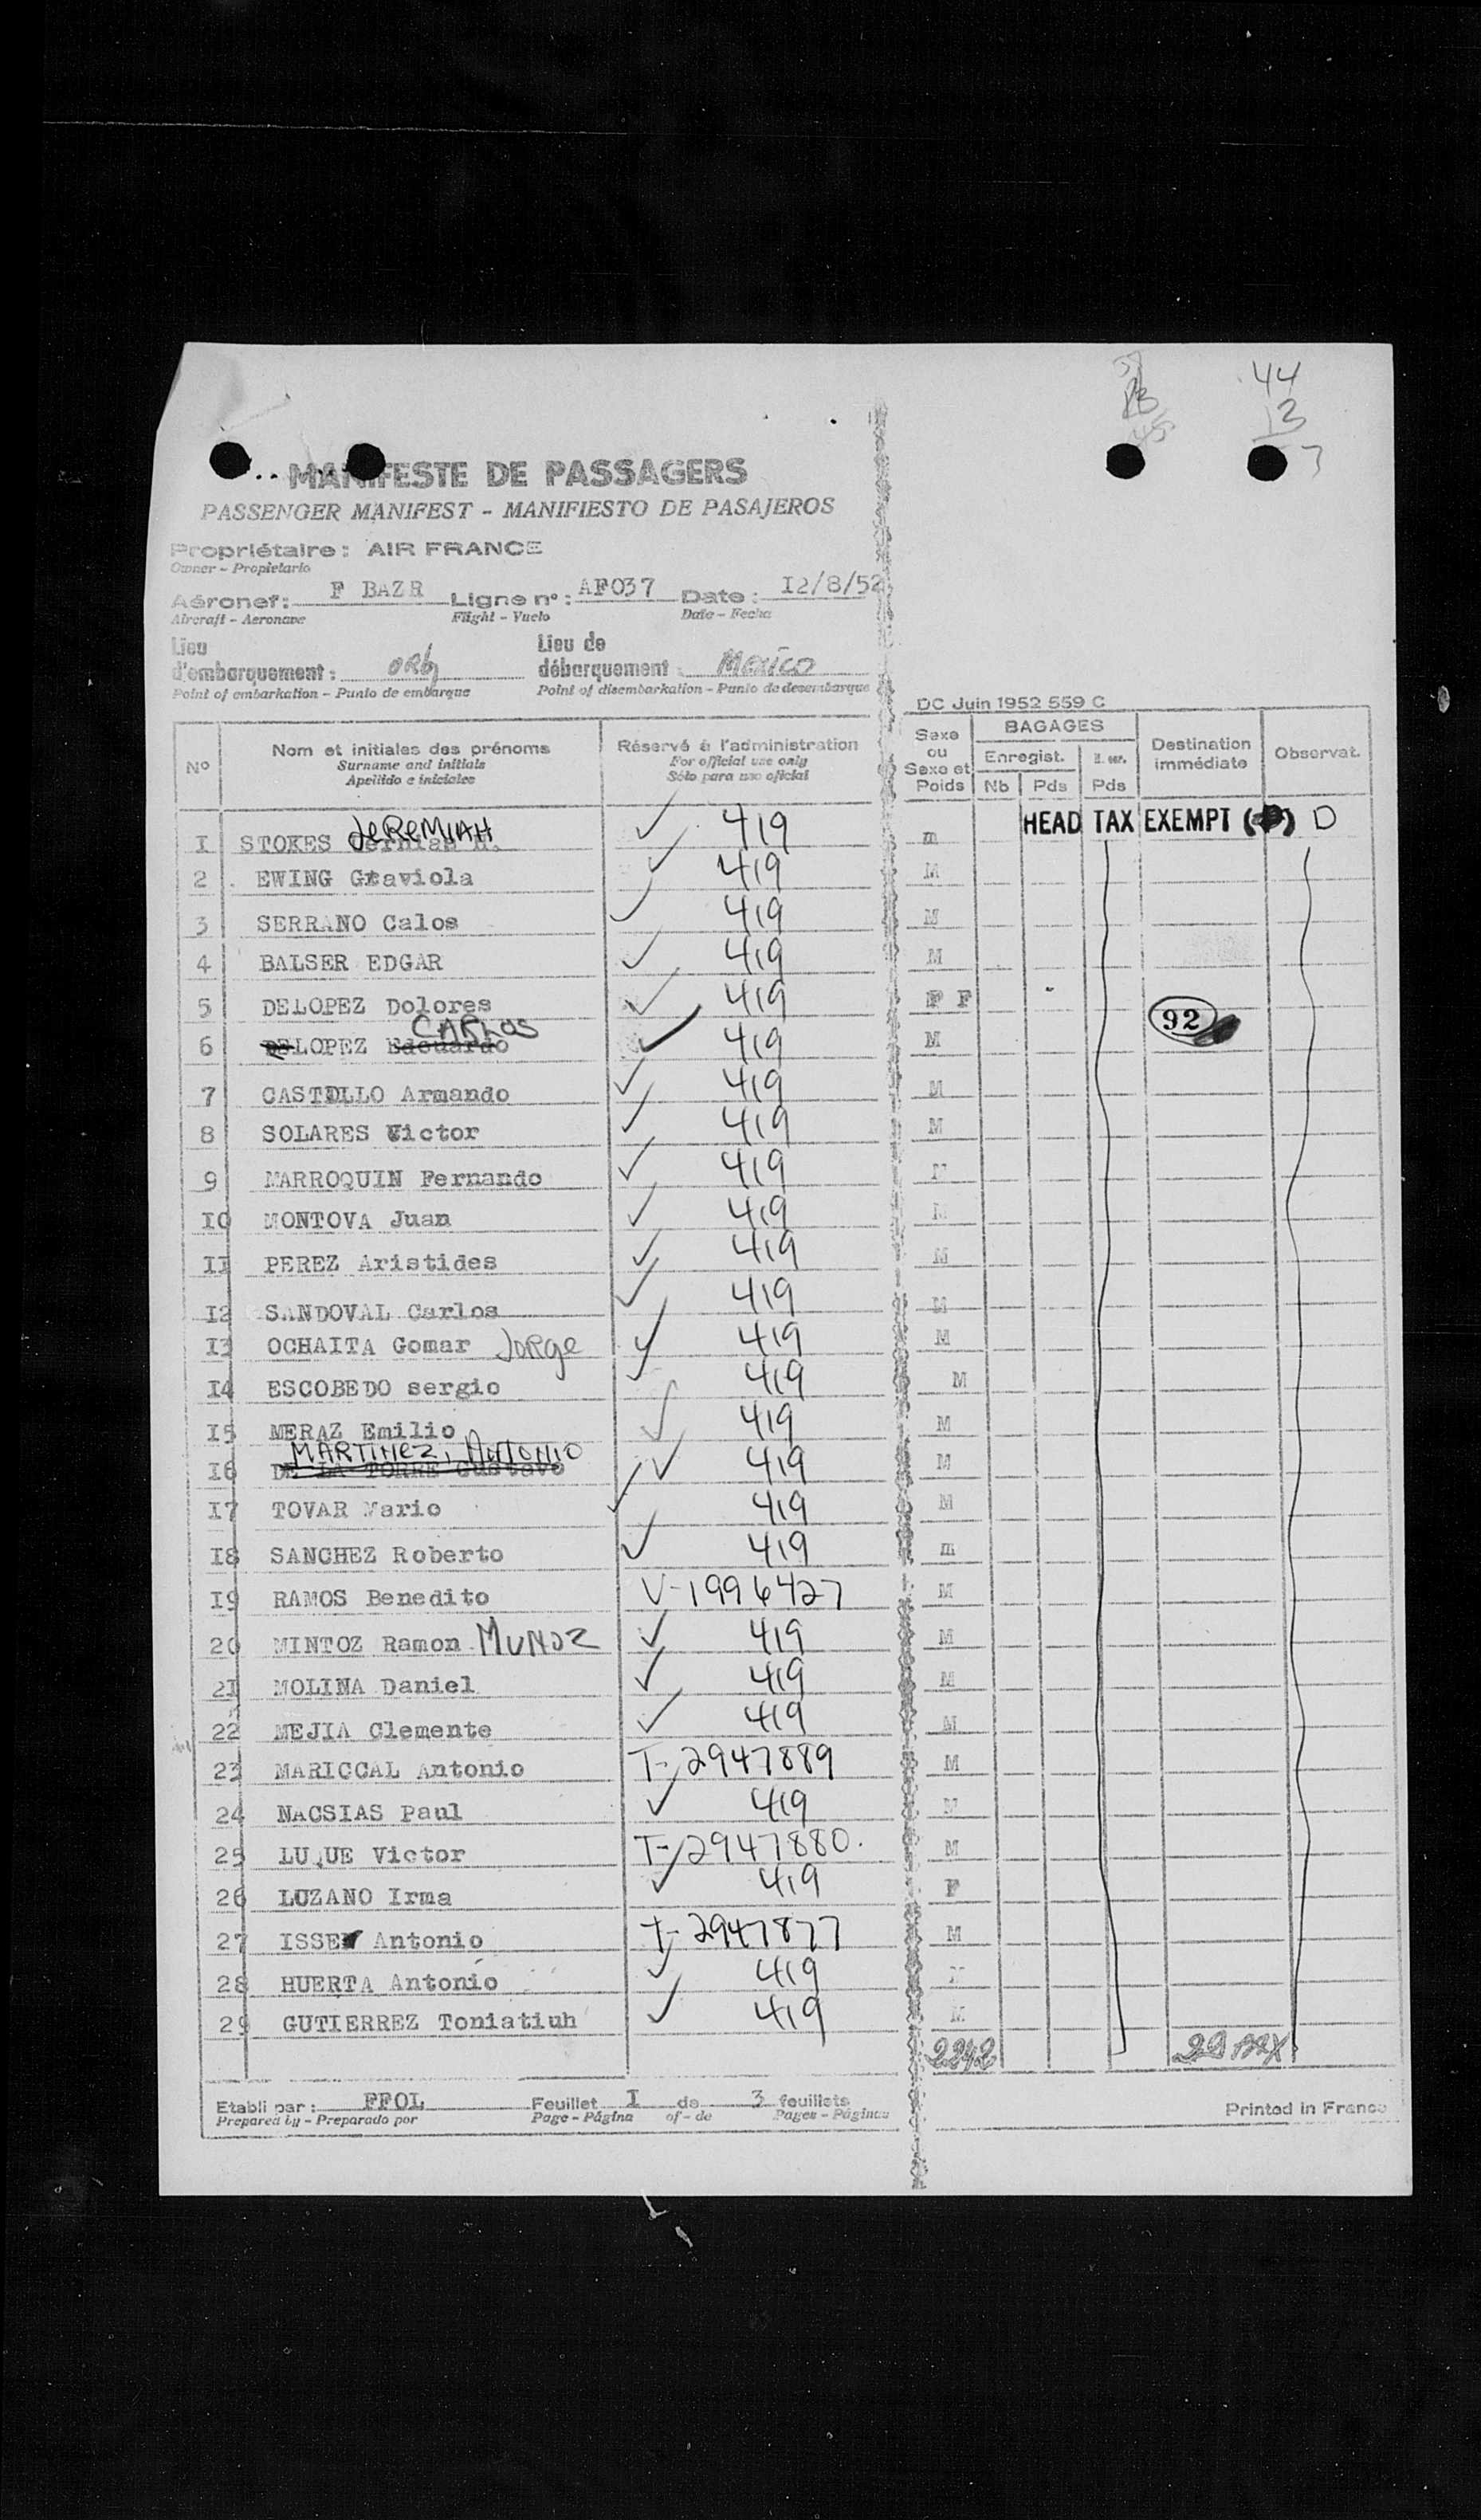 44
13
MANIFESTE DE PASSAGERS
PASSENGER MANIFEST - MANIFIESTO DE PASAJEROS
Propriétaire: AIR FRANCE
Owner - Propietario
Aéronef: F BAZR Ligne n°: AF037 Date: I2/8/52
Aircraft - Aeronave Flight - Vuelo Date - Fecha
Lieu d'embarquement: orly Lieu de débarquement: Mexico
Point of embarkation - Punto de embarque Point of disembarkation - Punto de desembarque
DC Juin 1952 559 C
N° Nom et initiales des prénoms Réservé à l'administration Sexe ou Sexe et Poids BAGAGES Destination immédiate Observat.
Surname and initials For official use only Enregist.
Apellido e iniciales Sólo para uso oficial Nb Pds Pds
HEAD TAX EXEMPT ( ) D
I STOKES JEREMIAH 419 m
2 EWING Graviola 419 M
3 SERRANO Calos 419 M
4 BALSER EDGAR 419 M
5 DELOPEZ Dolores 419 F F
92
6 DELOPEZ Edouardo CARLOS 419 M
7 CASTILLO Armando 419 M
8 SOLARES Victor 419 M
9 MARROQUIN Fernando 419 M
I0 MONTOVA Juan 419 M
II PEREZ Aristides 419 M
I2 SANDOVAL Carlos 419 M
I3 OCHAITA Gomar Jorge 419 M
I4 ESCOBEDO sergio 419 M
I5 MERAZ Emilio 419 M
MARTINEZ, ANTONIO
I6 DE LA TORRE Gustavo 419 M
I7 TOVAR Mario 419 M
I8 SANCHEZ Roberto 419 m
I9 RAMOS Benedito V-1996427 M
20 MINTOZ Ramon MUNOZ 419 M
2I MOLINA Daniel 419 M
22 MEJIA Clemente 419 M
23 MARICCAL Antonio T-2947889 M
24 NACSIAS Paul 419 M
25 LUQUE Victor T-2947880. M
26 LUZANO Irma 419 F
27 ISSE Antonio T-2947877 M
28 HUERTA Antonio 419 M
29 GUTIERREZ Toniatiuh 419 M
2242 29 PAX
Etabli par: FFOL Feuillet I de 3 feuillets
Prepared by - Preparado por Page - Página of - de Pages - Páginas
Printed in France